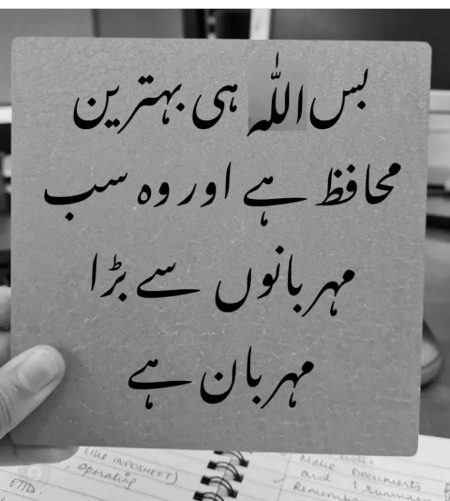 بس اللہ ہی بہترین
محافظ ہے اور وہ سب
مہربانوں سے بڑا
مہربان ہے
(LIKE INFOSHEET)
operating
ETID.
Make Documents
and 1 Summary